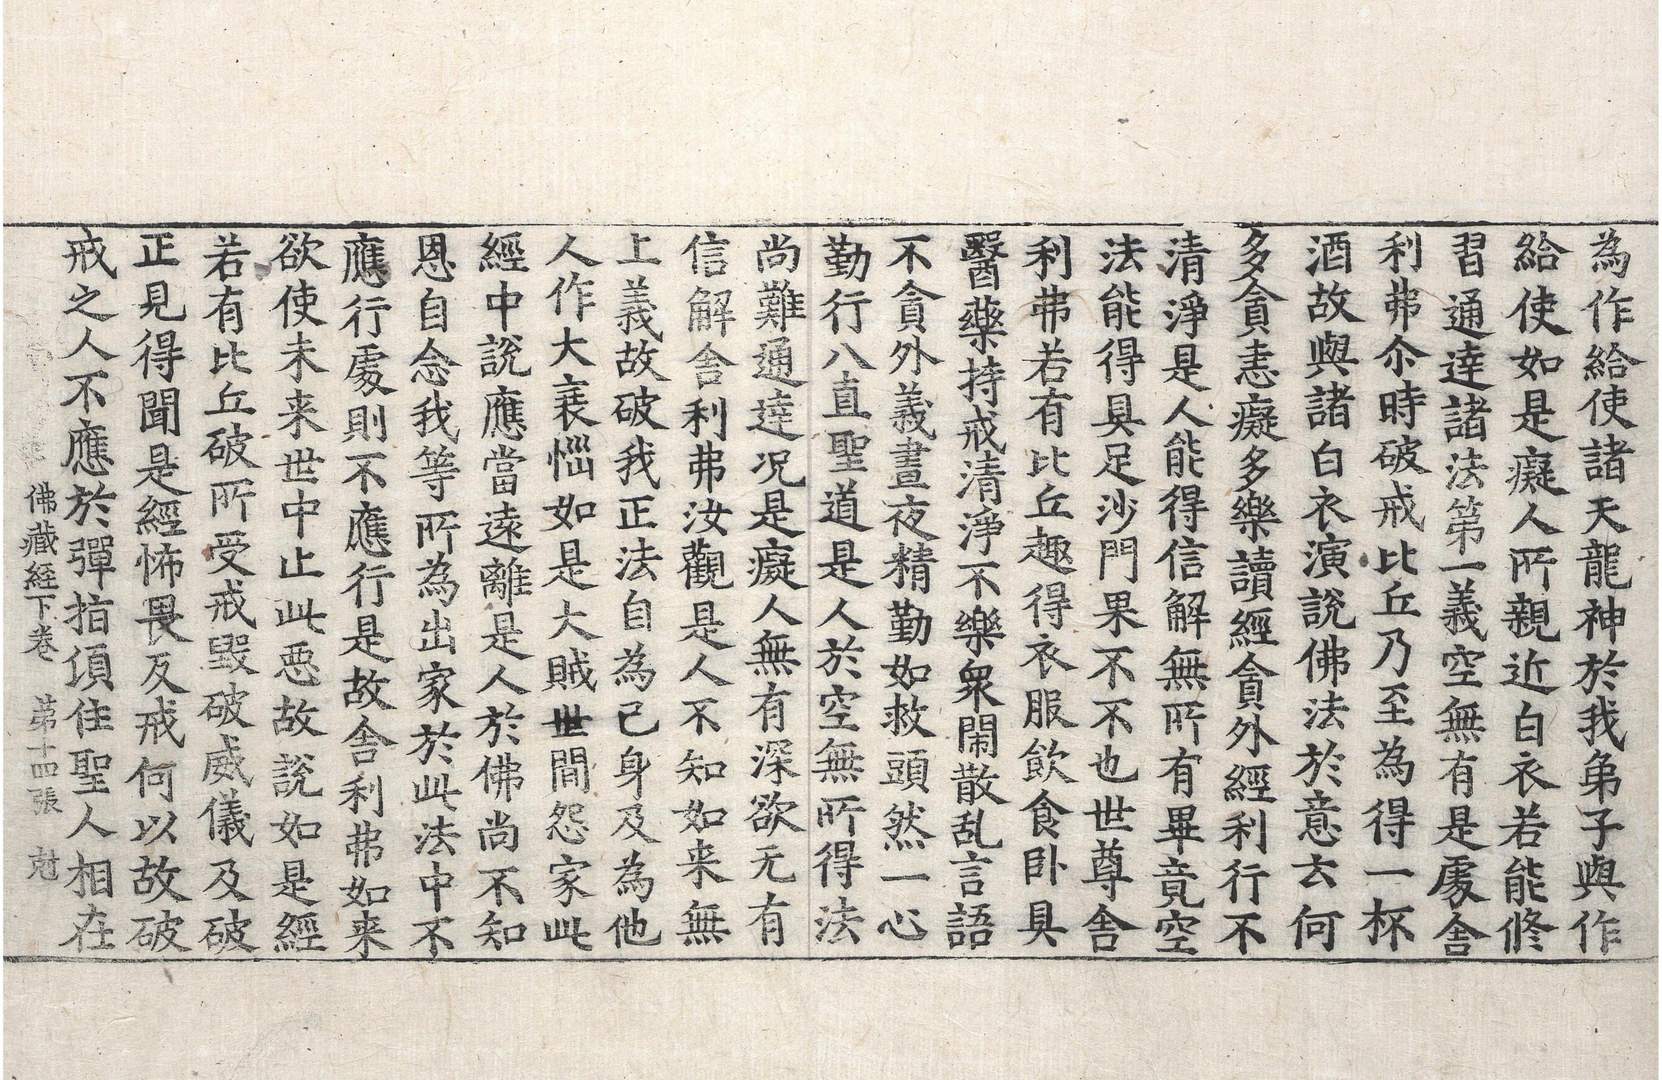 為作給使諸天龍神於我弟子與作
給使如是癡人所親近白衣若能修
習通達諸法第一義空無有是處舍
利弗尒時破戒比丘乃至為得一杯
酒故與諸白衣演說佛法於意去何
多貪恚癡多樂讀經貪外經利行不
清淨是人能得信解無所有畢竟空
法能得具足沙門果不不也世尊舍
利弗若有比丘趣得衣服飲食卧具
醫藥持戒清淨不樂衆閙散乱言語
不貪外義晝夜精勤如救頭然一心
勤行八直聖道是人於空無所得法
尚難通達况是癡人無有深欲无有
信解舍利弗汝觀是人不知如来無
上義故破我正法自為己身及為他
人作大衰惱如是大賊世間怨家此
經中說應當遠離是人於佛尚不知
恩自念我等所為出家於此法中不
應行處則不應行是故舍利弗如来
欲使未来世中止此惡故說如是經
若有比丘破所受戒毀破威儀及破
正見得聞是經怖畏反戒何以故破
戒之人不應於彈指頃住聖人相在
佛藏經下卷 第十四張 尅